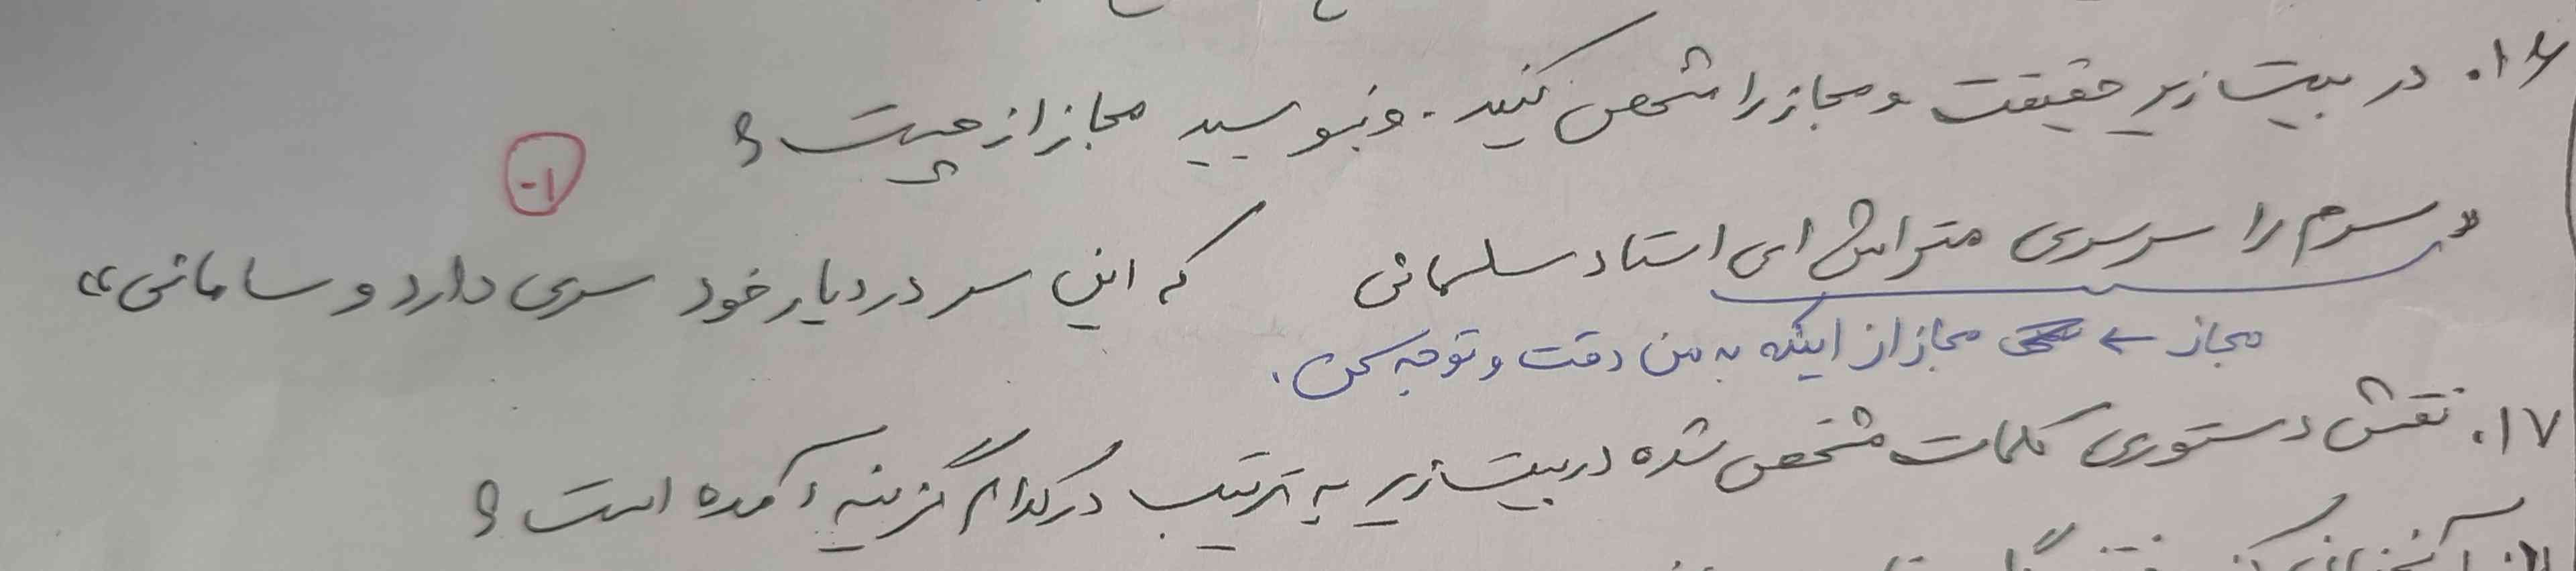 ۱۶. در بیت زیر حقیقت و مجاز را مشخص کنید. و بنویسید مجاز از چیست؟
-۱
«سرم را سرسری متراش ای استاد سلمانی که این سر در دیار خود سری دارد و سامانی»
مجاز ← مجاز از اینکه به من دقت و توجه کن.
۱۷. نقش دستوری کلمات مشخص شده در بیت زیر به ترتیب در کدام گزینه آمده است؟